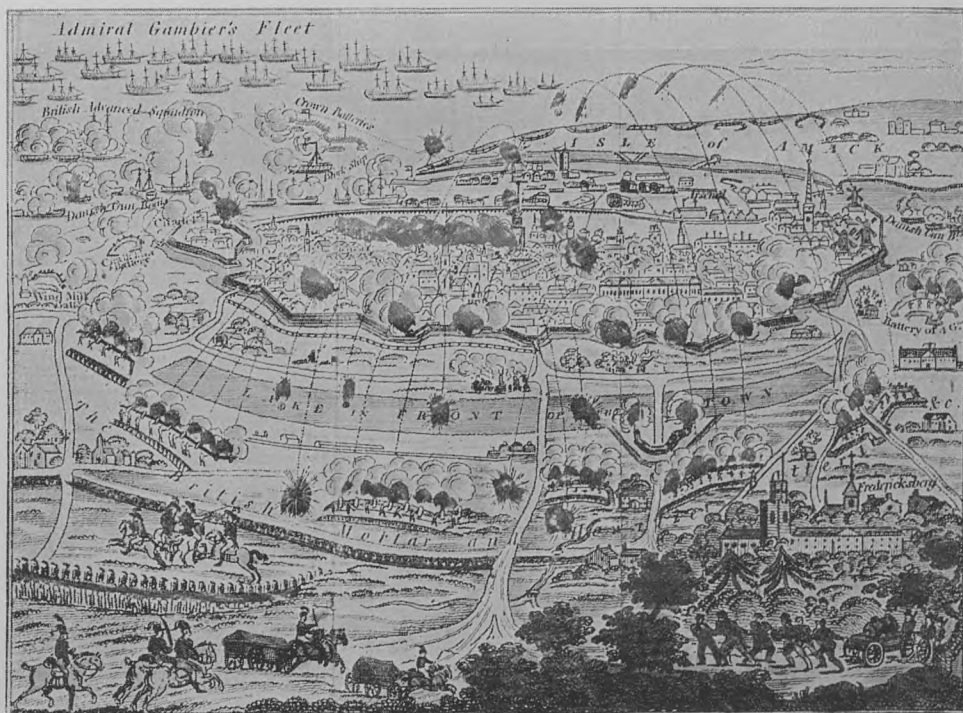 Admiral Gambier's Fleet
British Advanced Squadron
Crown Batteries
Block Ship
ISLE of AMACK
Danish Gun Boats
Citadel
Wind Mill
Battery of 4 Guns
LAKE IN FRONT OF the TOWN
&c.
The British Mortar and
Fredericksberg